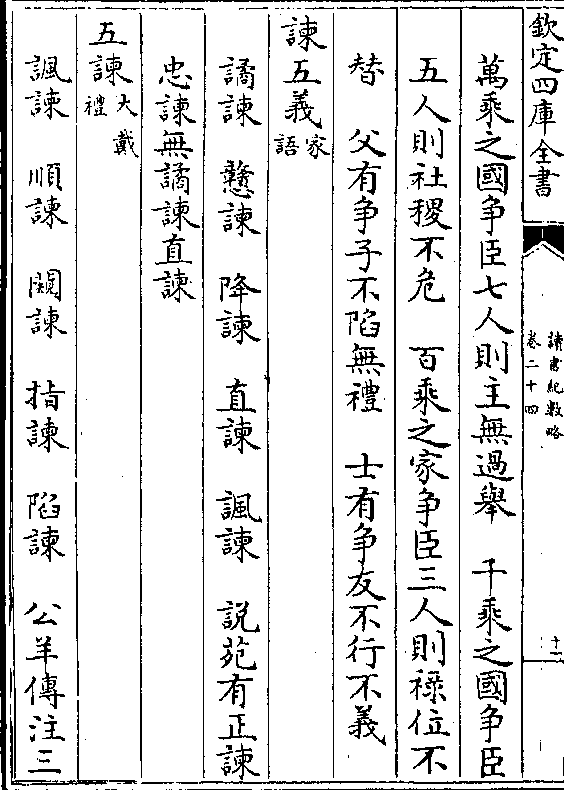 欽定四庫全書
讀書紀數略
卷二十四
十一
萬乘之國争臣七人則主無過舉　千乘之國争臣
五人則社稷不危　百乘之家争臣三人則祿位不
替　父有争子不陷無禮　士有争友不行不義
諫五義家語
譎諫　戇諫　降諫　直諫　諷諫　説苑有正諫
忠諫無譎諫直諫
五諫大戴禮
諷諫　順諫　闚諫　指諫　陷諫　公羊傳注三